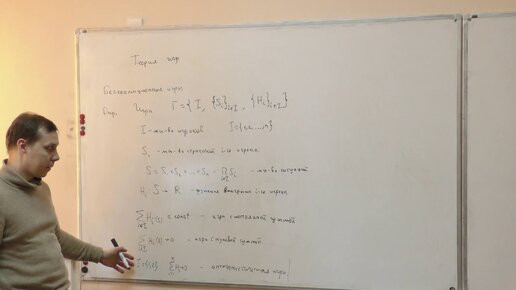 Теория игр
Бескоалиционные игры
Опр. Игра Γ = { I, {S_i}_{i∈I}, {H_i}_{i∈I} }
I – мн-во игроков I={1,2,...,n}
S_i – мн-во стратегий i-го игрока.
S = S_1 × S_2 × ... × S_n = ∏_{i∈I} S_i – мн-во ситуаций
H_i S → R – функция выигрыша i-го игрока.
∑_{i∈I} H_i(s) = const – игра с постоянной суммой
∑_{i∈I} H_i(s) = 0 – игра с нулевой суммой
I={1,2}, ∑ H_i=0 – антагонистическая игра